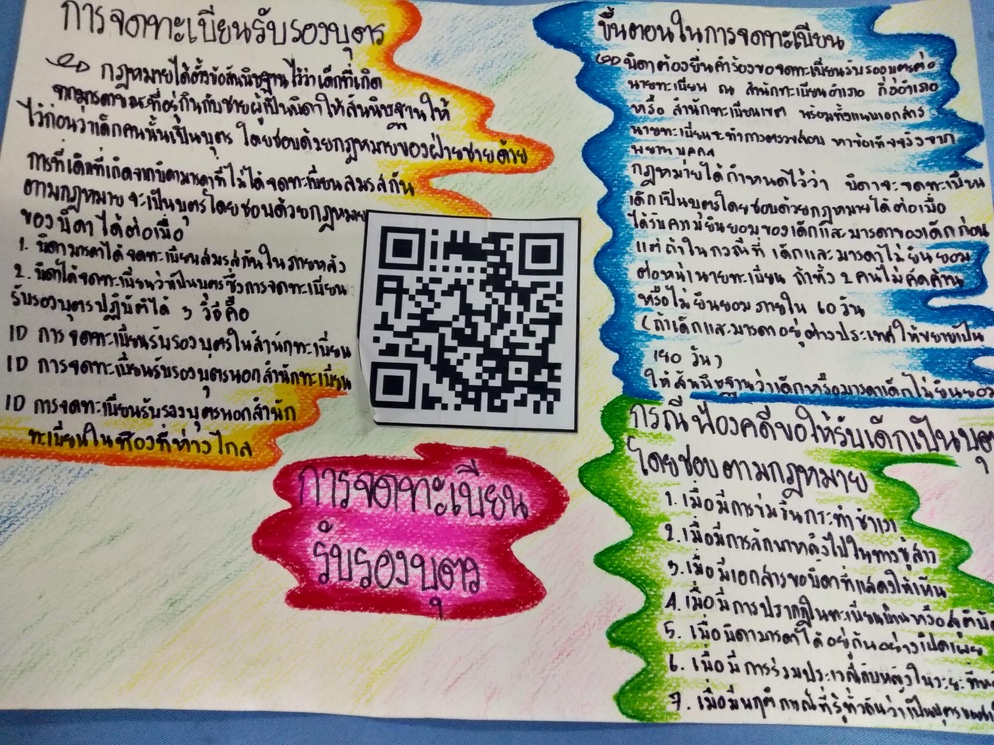 การจดทะเบียนรับรองบุตร
กฎหมายได้ตั้งข้อสันนิษฐานไว้ว่าเด็กที่เกิด
จากมารดาขณะที่อยู่กินกับชายผู้เป็นบิดาให้สันนิษฐานให้
ไว้ก่อนว่าเด็กคนนั้นเป็นบุตร โดยชอบด้วยกฎหมายของฝ่ายชายด้วย
การที่เด็กที่เกิดจากบิดามารดาที่ไม่ได้จดทะเบียนสมรสกัน
ตามกฎหมาย จะเป็นบุตรโดยชอบด้วยกฎหมาย
ของบิดาได้ต่อเมื่อ
1. บิดามารดาได้จดทะเบียนสมรสกันในภายหลัง
2. บิดาได้จดทะเบียนว่าเป็นบุตรซึ่งการจดทะเบียน
รับรองบุตรปฏิบัติได้ 3 วิธี คือ
1D การจดทะเบียนรับรองบุตรในสำนักทะเบียน
1D การจดทะเบียนรับรองบุตรนอกสำนักทะเบียน
1D การจดทะเบียนรับรองบุตรนอกสำนัก
ทะเบียนในท้องที่ห่างไกล
การจดทะเบียน
รับรองบุตร
ขั้นตอนในการจดทะเบียน
บิดาต้องยื่นคำร้องขอจดทะเบียนรับรองบุตรต่อ
นายทะเบียน ณ สำนักทะเบียนอำเภอ กิ่งอำเภอ
หรือ สำนักทะเบียนเขต พร้อมทั้งแนบเอกสาร
นายทะเบียนจะทำการตรวจสอบ หาข้อเท็จจริงจาก
พยานบุคคล
กฎหมายได้กำหนดไว้ว่า บิดาจะจดทะเบียน
เด็กเป็นบุตรโดยชอบด้วยกฎหมายได้ต่อเมื่อ
ได้รับความยินยอมของเด็กและมารดาของเด็กก่อน
แต่ถ้าในกรณีที่ เด็กและมารดาไม่ยินยอม
ต่อหน้านายทะเบียน ถ้าทั้ง 2 คนไม่คัดค้าน
หรือไม่ยินยอมภายใน 60 วัน
(ถ้าเด็กและมารดาอยู่ต่างประเทศให้ขยายเป็น
180 วัน)
ให้สันนิษฐานว่าเด็กหรือมารดาเด็กไม่ยินยอม
กรณีฟ้องคดีขอให้รับเด็กเป็นบุตร
โดยชอบตามกฎหมาย
1. เมื่อมีการข่มขืนกระทำชำเรา
2. เมื่อมีการลักพาหลังไปในทางชู้สาว
3. เมื่อมีเอกสารของบิดาที่แสดงให้เห็น
4. เมื่อมีการปรากฏในทะเบียนบ้านหรือ
5. เมื่อบิดามารดาได้อยู่กันอย่างเปิดเผย
6. เมื่อมีการร่วมประเวณีกับหญิงในระยะ
7. เมื่อมีพฤติการณ์ที่รู้ทั่วกันว่าเป็นบุตร